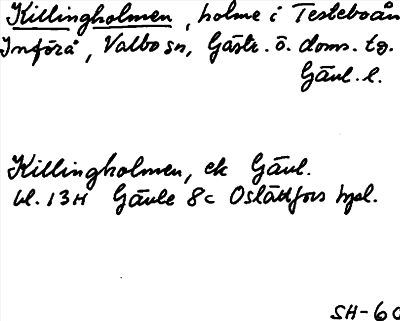 Killingholmen, holme i Testeboån
Införå, Valbo sn, Gästr. ö. doms. tg.
Gävl. l.
Killingholmen, ek Gävl.
bl. 13H Gävle 8c Oslättfors hpl.
SH-60